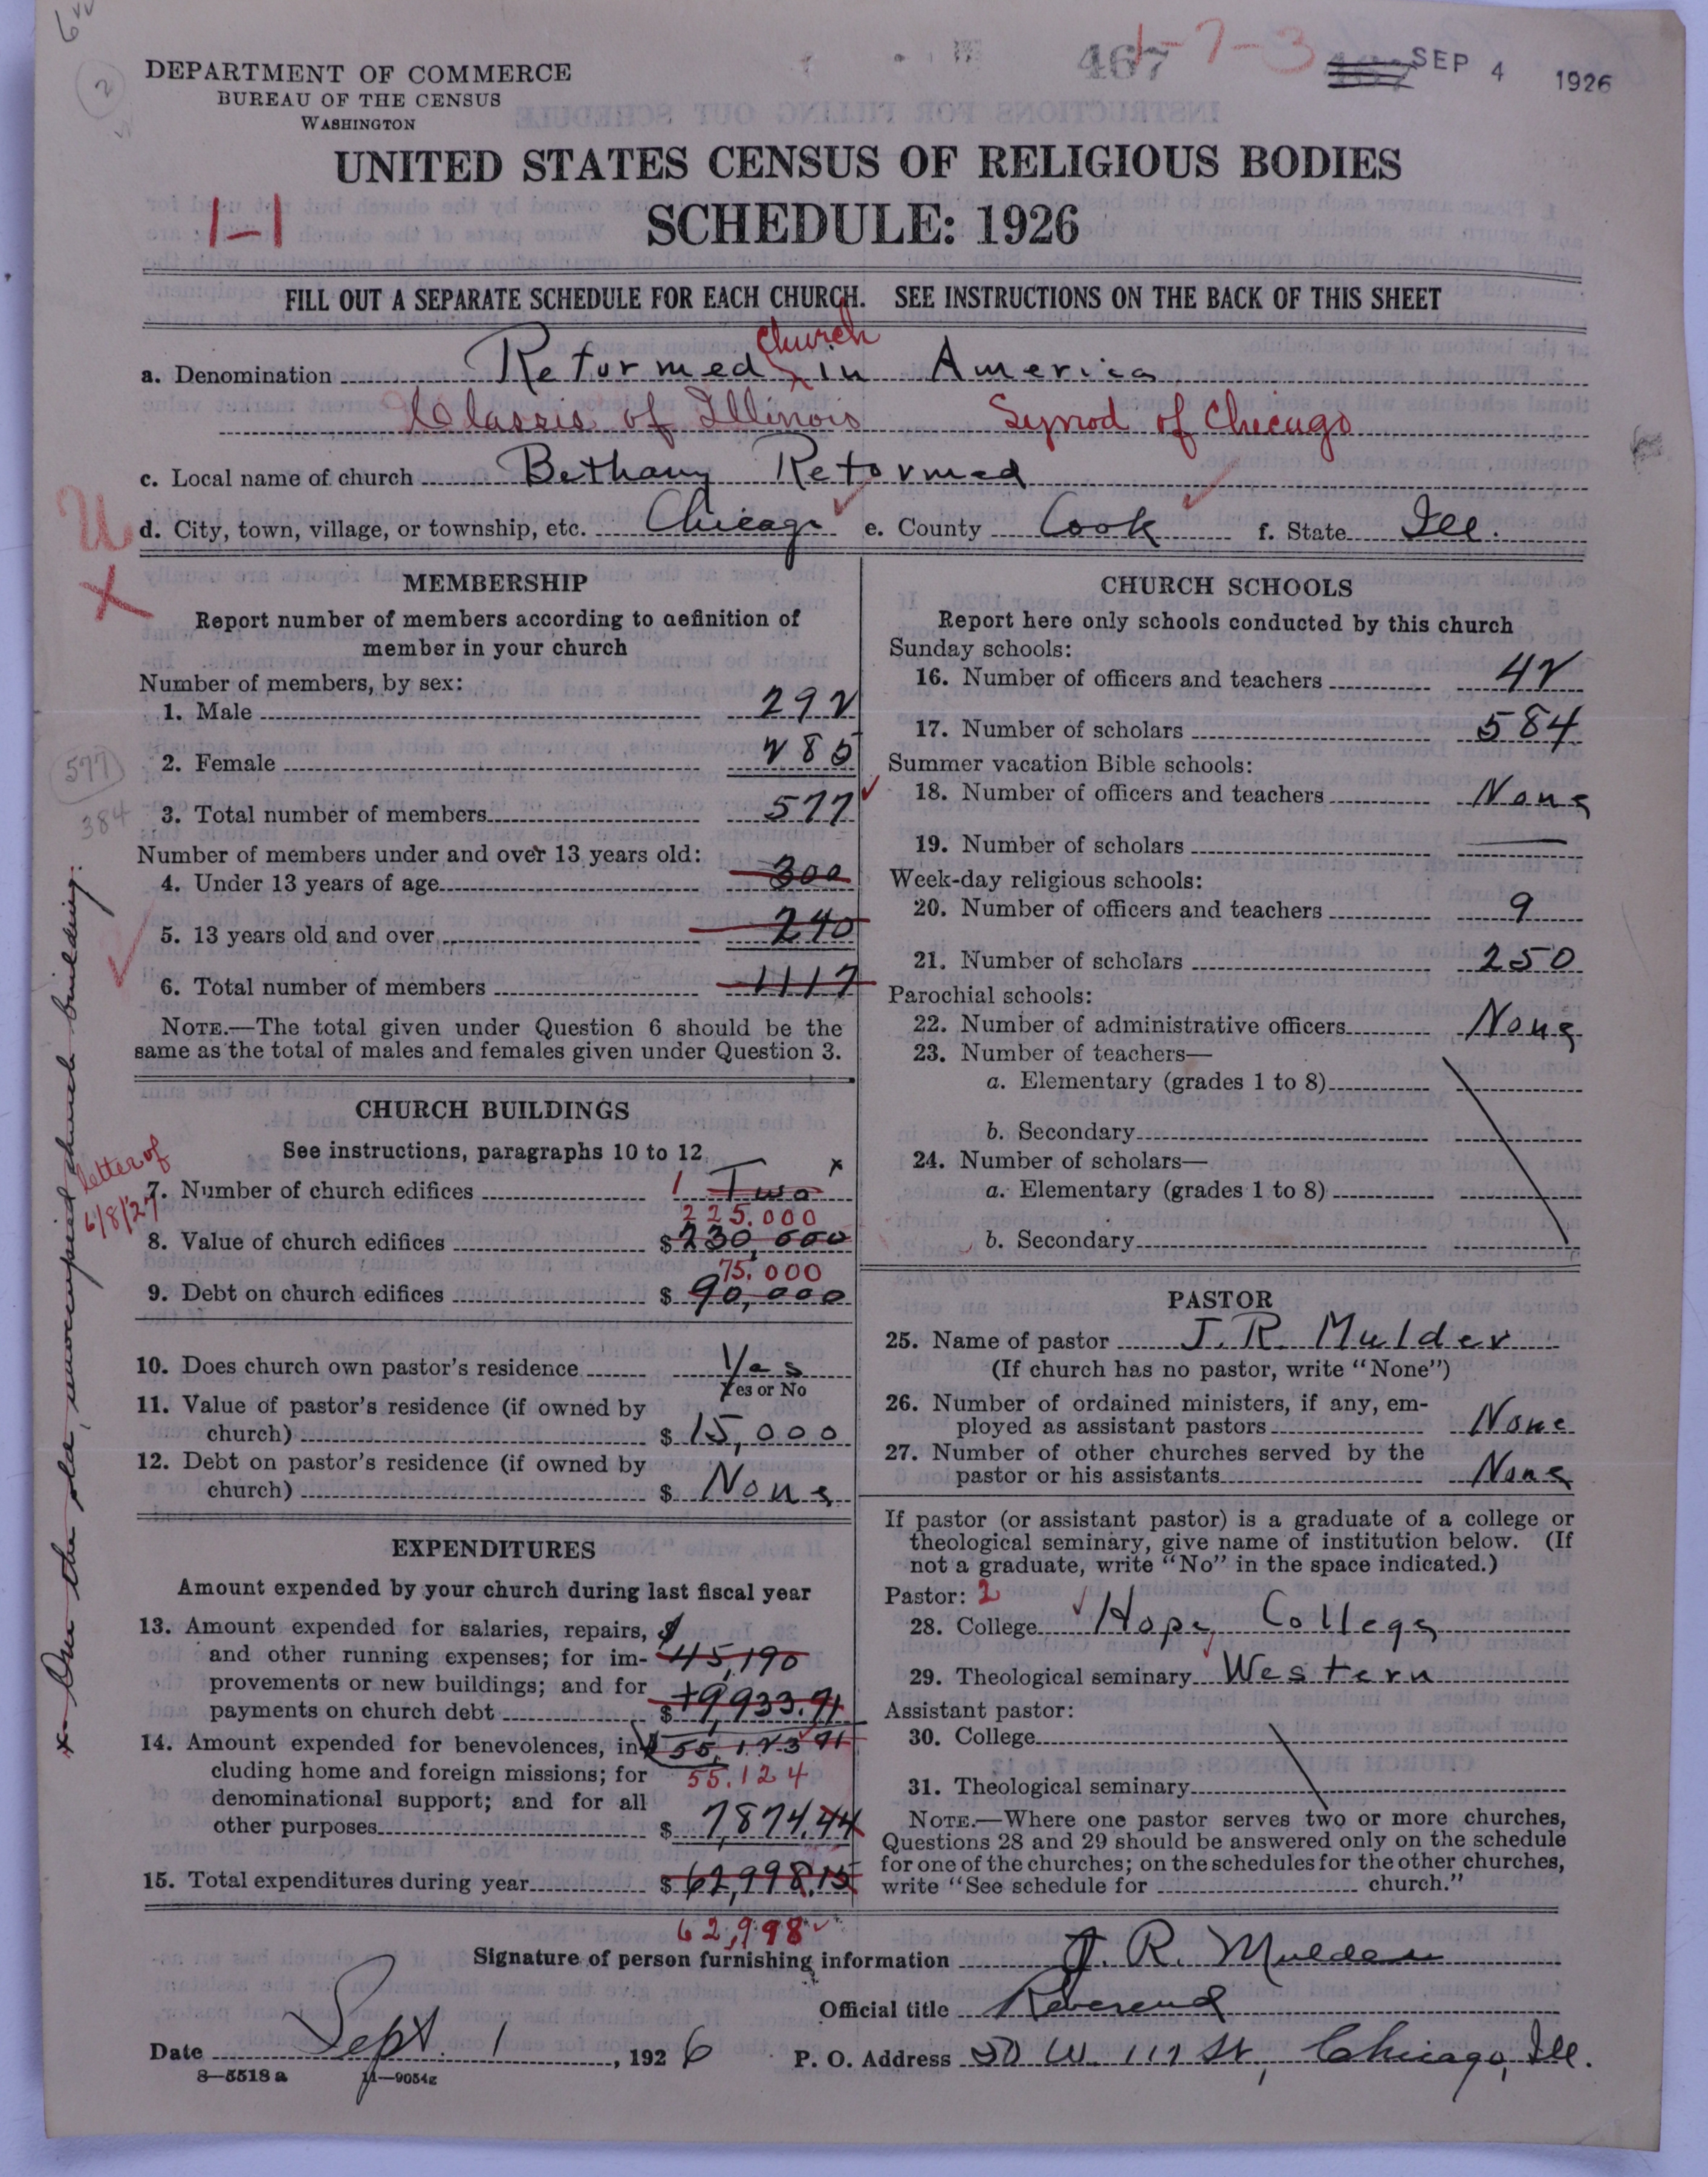 DEPARTMENT OF COMMERCE
BUREAU OF THE CENSUS
WASHINGTON
467 1-7-3 SEP 4 1926
UNITED STATES CENSUS OF RELIGIOUS BODIES
1-1
SCHEDULE: 1926
FILL OUT A SEPARATE SCHEDULE FOR EACH CHURCH. SEE INSTRUCTIONS ON THE BACK OF THIS SHEET
a. Denomination Reformed Church in America
Classis of Illinois Synod of Chicago
c. Local name of church Bethany Reformed
d. City, town, village, or township, etc. Chicago e. County Cook f. State Ill.
MEMBERSHIP
Report number of members according to definition of
member in your church
Number of members, by sex:
1. Male 292
2. Female 285
577
3. Total number of members 577
384
Number of members under and over 13 years old:
4. Under 13 years of age 300
5. 13 years old and over 240
6. Total number of members 1117
NOTE.—The total given under Question 6 should be the
same as the total of males and females given under Question 3.
CHURCH BUILDINGS
See instructions, paragraphs 10 to 12
letter of
6/8/27
7. Number of church edifices 1 Two x
225.000
8. Value of church edifices $ 230,000
75.000
9. Debt on church edifices $ 90,000
10. Does church own pastor's residence Yes
Yes or No
11. Value of pastor's residence (if owned by
church) $ 15,000
12. Debt on pastor's residence (if owned by
church) $ None
EXPENDITURES
Amount expended by your church during last fiscal year
13. Amount expended for salaries, repairs, $
and other running expenses; for im- 45,190
provements or new buildings; and for
payments on church debt $ +9,933.91
14. Amount expended for benevolences, in- $ 55,123 91
cluding home and foreign missions; for 55.124
denominational support; and for all
other purposes $ 7,874.44
15. Total expenditures during year $ 62,998.15
62,998
x One the old, unoccupied church building.
CHURCH SCHOOLS
Report here only schools conducted by this church
Sunday schools:
16. Number of officers and teachers 42
17. Number of scholars 584
Summer vacation Bible schools:
18. Number of officers and teachers None
19. Number of scholars —
Week-day religious schools:
20. Number of officers and teachers 9
21. Number of scholars 250
Parochial schools:
22. Number of administrative officers None
23. Number of teachers—
a. Elementary (grades 1 to 8)
b. Secondary
24. Number of scholars—
a. Elementary (grades 1 to 8)
b. Secondary
PASTOR
25. Name of pastor J. R. Mulder
(If church has no pastor, write "None")
26. Number of ordained ministers, if any, em-
ployed as assistant pastors None
27. Number of other churches served by the
pastor or his assistants None
If pastor (or assistant pastor) is a graduate of a college or
theological seminary, give name of institution below. (If
not a graduate, write "No" in the space indicated.)
Pastor: 2
28. College Hope College
29. Theological seminary Western
Assistant pastor:
30. College
31. Theological seminary
NOTE.—Where one pastor serves two or more churches,
Questions 28 and 29 should be answered only on the schedule
for one of the churches; on the schedules for the other churches,
write "See schedule for church."
Signature of person furnishing information J. R. Mulder
Official title Reverend
Date Sept. 1, 1926 P. O. Address 50 W. 111 St., Chicago, Ill.
8—5518 a 11—9054a